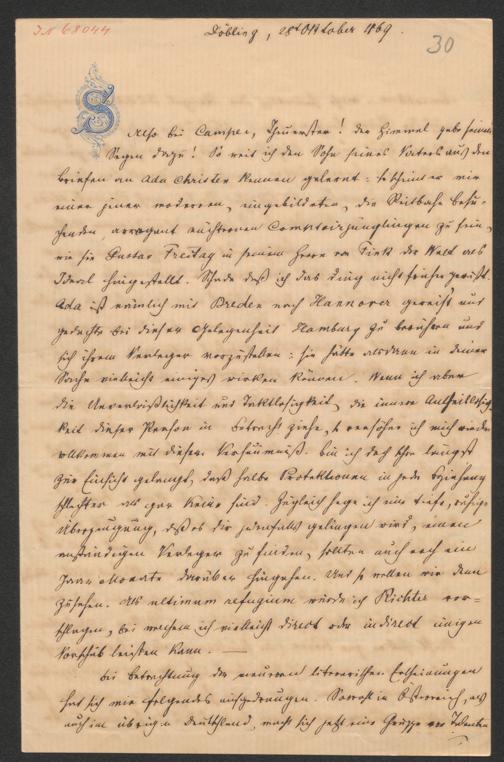 IN 68044
Döbling, 28t Oktober 1869.
30
S
Also bei Campe, Theuerster! der Himmel gebe seinen
Segen dazu! So weit ich den Sohn seines Vaters aus den
Briefen an Ada Christen kennen gelernt: so scheint er mir
einer jener modernen, eingebildeten, die Reitbahn besu-
chenden, arrogant nüchternen Comptoirjünglingen zu sein,
wie sie Gustav Freitag in seinem Herrn von Fink der Welt als
Ideal hingestellt. Schade daß ich das Ding nicht früher gewußt.
Ada ist nämlich mit Breden nach Hannover gereist und
gedachte bei dieser Gelegenheit Hamburg zu berühren und
sich ihrem Verleger vorzustellen: sie hätte alsdann in deiner
Sache vielleicht einiges wirken können. Wenn ich aber
die Unverläßlichkeit und Taktlosigkeit, die innere Antheillosig-
keit dieser Person in Betracht ziehe, so versöhne ich mich wieder
vollkommen mit dieser Versäumniß. bin ich doch schon längst
zur Einsicht gelangt, daß halbe Protektionen in jeder Beziehung
schlechter als gar keine sind. Zugleich hege ich eine tiefe, ruhige
Überzeugung, daß es dir jedenfalls gelingen wird, einen
anständigen Verleger zu finden, sollten auch noch ein
Paar Monate darüber hingehen. Und so wollen wir denn
zusehen. Als ultimum refugium würde ich Richter vor-
schlagen, bei welchem ich vielleicht direct oder indirect einigen
Vorschub leisten kann. —
Bei Betrachtung der neueren literarischen Erscheinungen
hat sich mir folgendes aufgedrungen. Sowohl in Österreich, als
auch im übrigen Deutschland, macht sich jetzt eine Gruppe von Talenten